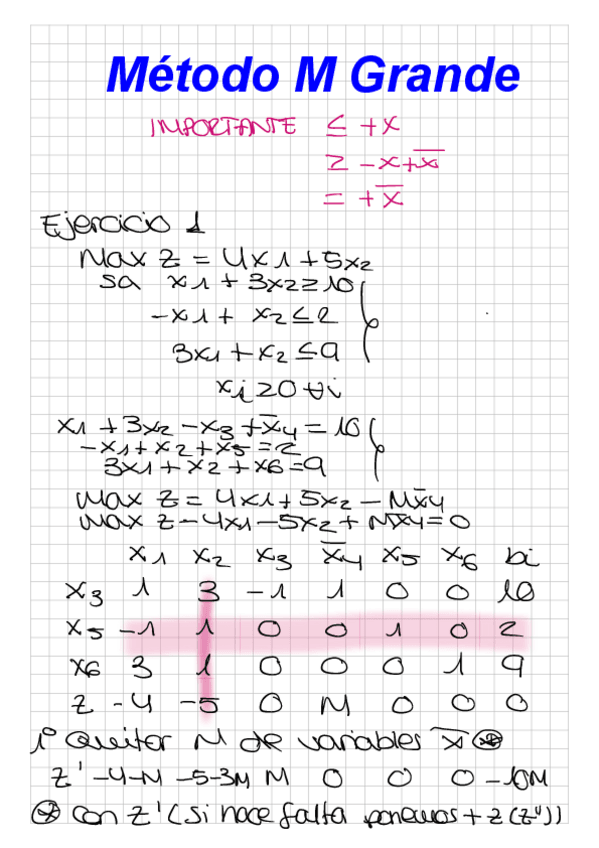 Método M Grande
IMPORTANTE ≤ +x
≥ -x+x̄
= +x̄
Ejercicio 1
Max z = 4x1+5x2
sa x1 + 3x2≥10
-x1+ x2≤2
3x1+x2≤9
xi≥0 ∀i
x1+3x2-x3+x̄4=10
-x1+x2+x5=2
3x1+x2+x6=9
Max z=4x1+5x2-Mx̄4
Max z-4x1-5x2+Mx̄4=0
x1 x2 x3 x̄4 x5 x6 bi
x3 1 3 -1 1 0 0 10
x5 -1 1 0 0 1 0 2
x6 3 1 0 0 0 1 9
z -4 -5 0 M 0 0 0
1º Quitar M de variables x̄ ⊛
z' -4-M -5-3M M 0 0 0 -10M
⊛ con z' (si hace falta ponemos + z (z''))